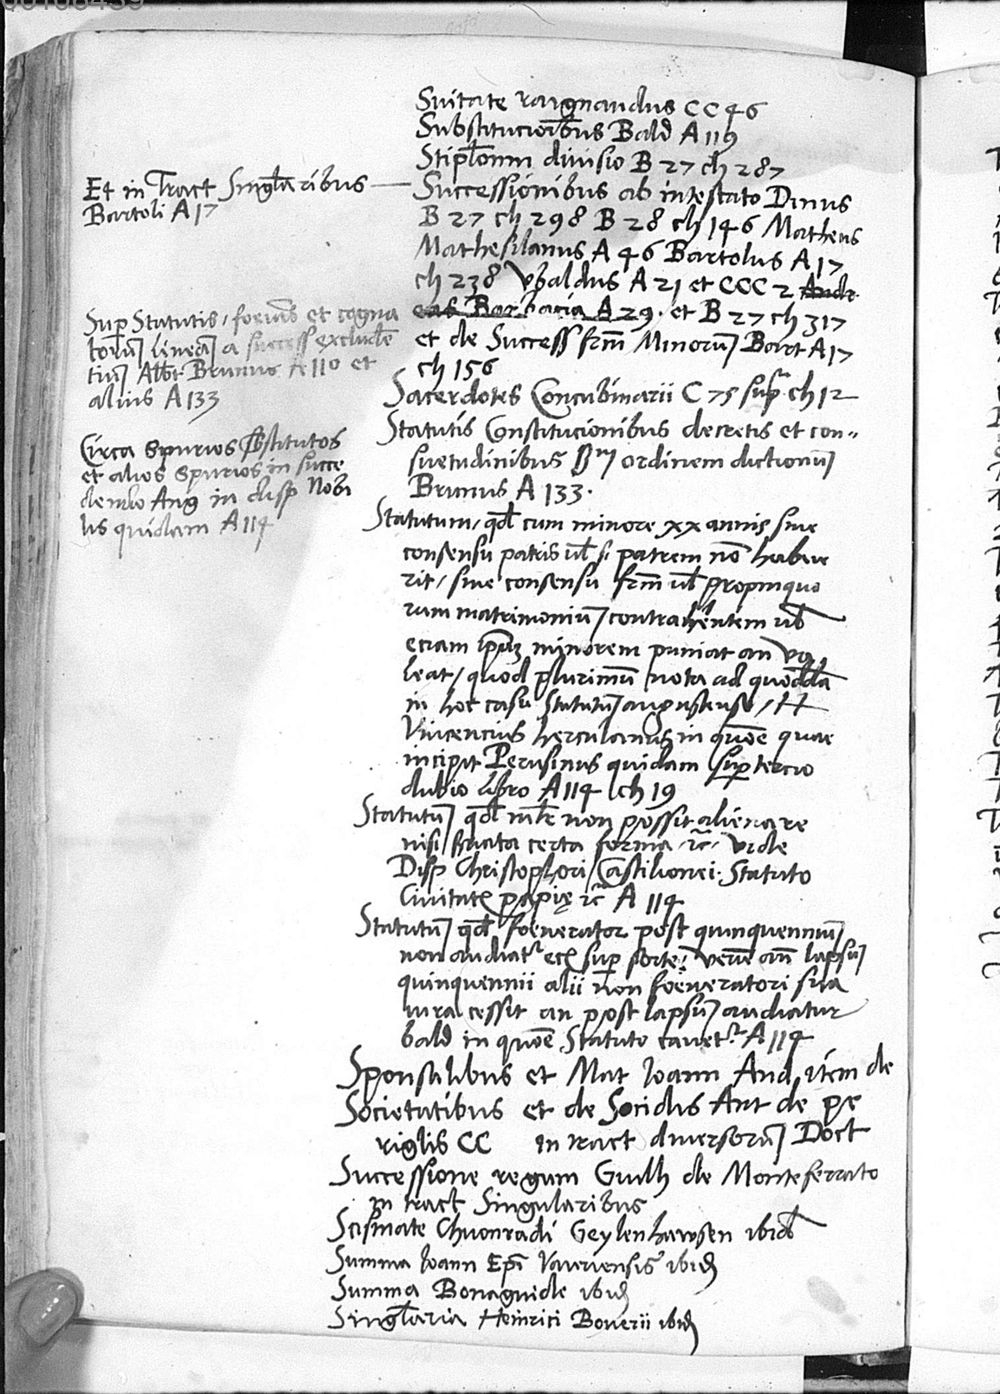 Suitate raignandus CC 46
Substitucioībus Bald A 119
Stipl'onum diuisio B 27 ch 287
Et in Tract Singl'aribus — Successionibus ab intestato Dinus
Bartoli A 17
B 27 ch 298 B 28 ch 146 Matheus
Mathesilanus A 46 Bartolus A 17
ch 238 Vbaldus A 21 et CCC 2 Andr
eas Barbacia A 29. et B 27 ch 317
et de Success frm̄ Minorum Bart A 17
ch 156
Sup Statutis, foeīs et cogna
torum lineam a success exclude
tium Albt Brunus A 110 et
alius A 133
Circa Spurios Substitutos
et alios Spurios in succe
dendo Ang in disp Nobi
lis quidam A 114
Sacerdotes Concubinarii C 75 sup ch 12
Statutis Constitucionibus decretis et con=
suetudinibus ordinem dictionum
Brunus A 133.
Statutum, qd cum minore xx annis sine
consensu patris ul' si patrem nō habue
rit, sine consensu frm̄ ul' propinquo
rum matrimonium contrahentem ul'
eciam ipsam minorem puniat an va
leat, quod plurimū nota ad quodda
in hoc casu Statutum augustense, H
Vincencius herculanus in quōe quae
incipit Perusinus quidam sup tercio
dubio libro A 114 ch 19
Statutum qd ml'r non possit alienare
nisi suata certa forma, rc, Vide
Disp Christophori Castilionei. Statuto
Ciuitatis papię rc A 114
Statutum qd foenerator post quinquennium
non audiatr etc sup sorte: verū an lapsum
quinquennii alii non foeneratori sua
iura cessit an post lapsum audiatur
bald in quōe Statuto cauetr A 114
Sponsalibus et Mat Ioann And item de
Societatibus et de Socidis Ant de pe
riglis CC in tract diuersorum Doct
Successione regum Guilh de Monteferrato
in tract Singularibus
Scismate Chuonradi Geylenhawsen ibid
Summa Ioann Epī Vauriensis ibid
Summa Bonaguide ibid
Singl'aria Heinrici Bouerii ibid